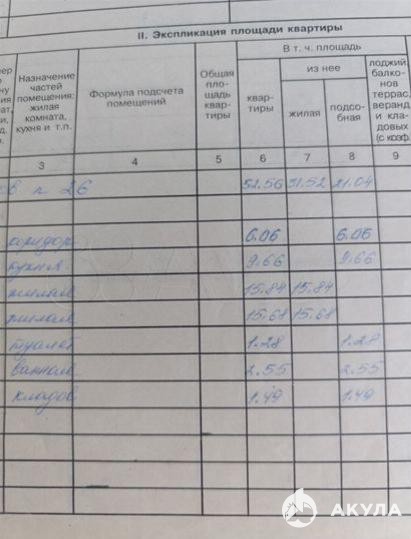 II. Экспликация площади квартиры
В т. ч. площадь
Назначение частей помещения: жилая комната, кухня и т.п.
Формула подсчета помещений
Общая пло- щадь квар- тиры
из нее
лоджий балко- нов террас, веранд и кла- довых (с коэф.
квар- тиры
жилая
подсо- бная
3 4 5 6 7 8 9
26 52.56 31.52 21.04
коридор 6.06 6.06
кухня 9.66 9.66
жилая 15.84 15.84
жилая 15.68 15.68
туалет 1.28 1.28
ванная 2.55 2.55
кладов 1.49 1.49
АКУЛА